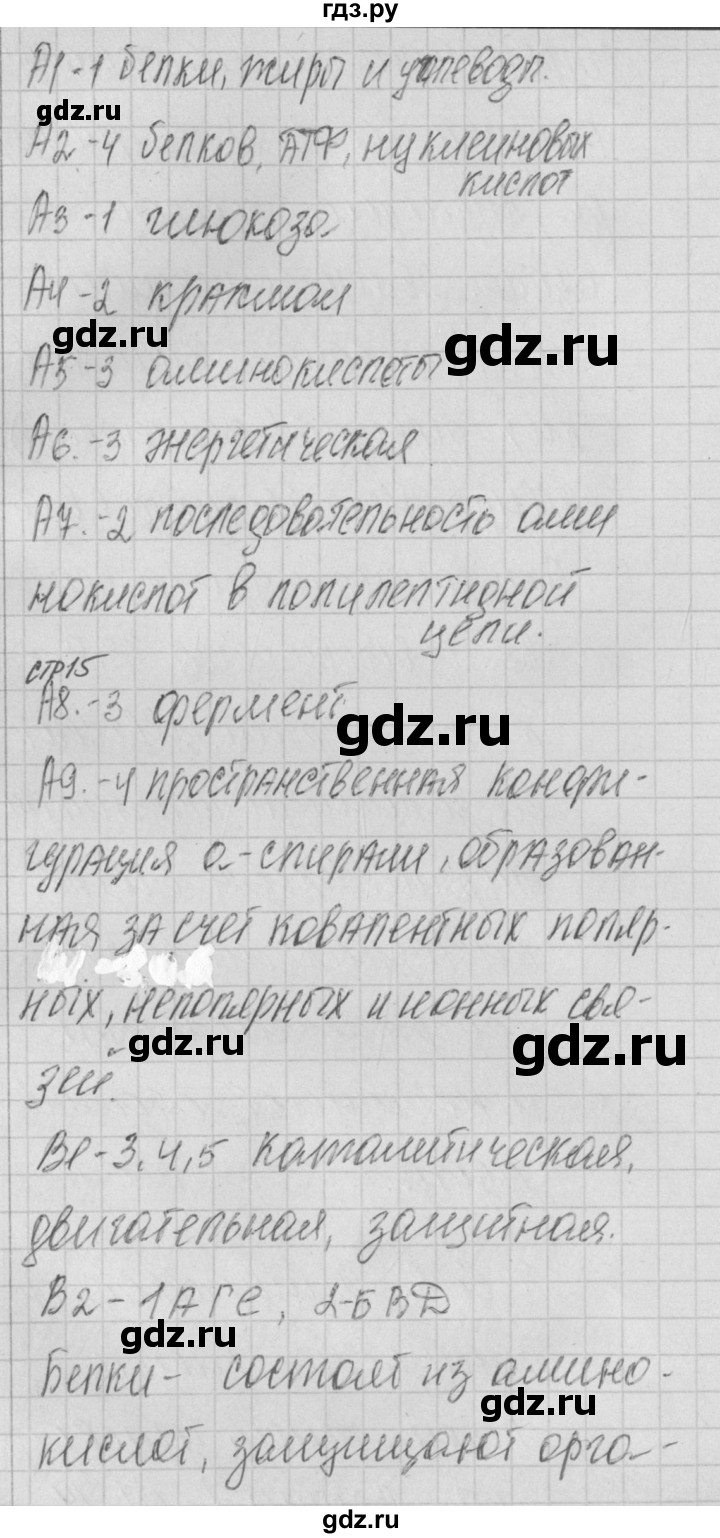 гдз.ру
А1-1 белки, жиры и углеводы.
gdz.ru
А2-4 белков, АТФ, нуклеиновых
кислот
А3-1 глюкоза
А4-2 крахмал
gdz.ru
gdz.ru
А5-3 аминокислоты
А6.-3 энергетическая
А7.-2 последовательность ами
нокислот в полипептидной
цепи.
стр15
А8.-3 фермент
gdz.ru
А9.-4 пространственная конфи-
гурация а-спирали, образован-
ная за счет ковалентных поляр-
ных, неполярных и ионных свя-
gdz.ru
gdz.ru
зей.
В1-3,4,5 каталитическая,
двигательная, защитная.
В2-1АГЕ, 2-БВД
gdz.ru
Белки- состоят из амино-
gdz.ru
кислот, защищают орга-
gdz.ru
gdz.ru